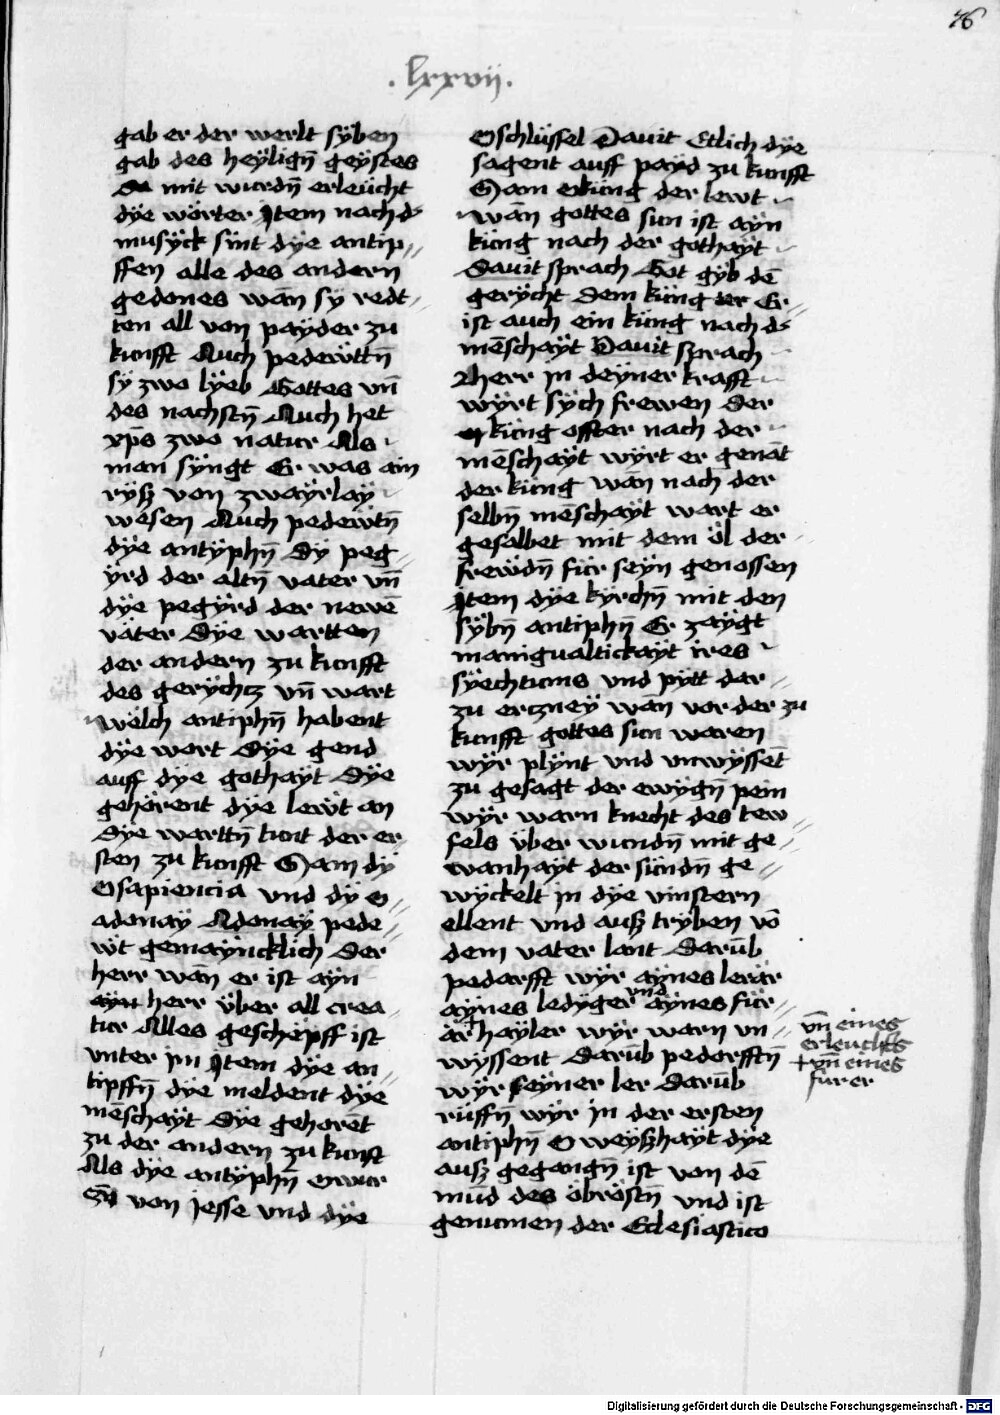 76
.lxxvij.
gab er der werlt sÿben
gab des heÿlign̄ geÿstes
Da mit wurdn̄ erleücht
dÿe wörter Item nach d
musÿck sint dÿe antip⸗
ffen alle des andern
gedones wān sy redt⸗
ten all von paÿder zu
kunfft Auch pedewttn̄
sÿ zwo lÿeb Gottes vn̄
des nachstn̄ Auch het
xp̄s zwo natur Als
man sÿngt Er was ain
rÿsz von zwaÿrlaÿ
wesen Auch pedewtn̄
dÿe antÿphn̄ Dÿ peg⸗
ÿrd der altn̄ vater vn̄
dÿe pegÿrd der newē
väter Dÿe wartten
der andern zu kunfft
des gerÿchtz vn̄ wart
welch antiphn̄ habent
dÿe wort Dÿe gend
auff dÿe gothaÿt Dÿe
gehörent dÿe lewt an
Dÿe warttn̄ kunt der er⸗
sten zu kunfft Sam dÿ
O sapiencia vnd dÿ o
adonaÿ Adonaÿ pede⸗
wt gemaÿncklich Der
herr wān er ist aÿn
herr über all crea⸗
tur Alles geschëpff ist
vnter im Item dÿe an⸗
tipffn̄ dÿe meldent dÿe
mēschaÿt Dÿe gehorēt
zu der andern zu kunft
Als dÿe antÿphn̄ o wur
czn̄ von jesse vnd dÿe
O schlüssel Dauit Etlich dÿe
sagent auff paÿd zu kunfft
Sam o küng der lewt
wān gottes sun ist aÿn
küng nach der gothaÿt
Dauit sprach Got gÿb dē
gerÿcht dem küng Er
ist auch ein küng nach d
mēschaÿt Dauit sprach
herr in deÿner krafft
wÿrt sÿch frewen Der
küng offter nach der
mēschaÿt wÿrt er genāt
der küng wān nach der
selbn̄ mēschaÿt wart er
gesalbet mit dem öl der
frewdn̄ für seÿn genossen
Item dÿe kÿrchn̄ mit den
sÿbn̄ antiphn̄ Er zaÿgt
manigualtickaÿt ires
sÿechtums vnd pÿtt dar⸗
zu ercznеÿ wān vor der zu
kunfft gottes sun waren
wÿr plÿnt vnd vnwÿssēt
zu gesagt der ewÿgn̄ pein
wÿr warn knecht des tew⸗
fels über wundn̄ mit ge⸗
wanhaÿt der sündn̄ ge⸗
wÿckelt in dÿe vinstern
ellent vnd ausz trÿben vō
dem vater lant Darūb
pedorfft wÿr aÿnes lerär
aÿnes ledÿger vnd aÿnes für⸗
är haÿler wÿr warn vn⸗
wÿssent Darūb pedorfftn̄
wÿr seÿner ler Darūb
rüffn̄ wÿr in der ersten
antiphn̄ O weÿszhaÿt dÿe
ausz gegangn̄ ist von dē
mūd des öbröstn̄ vnd ist
genumen der Eclesiastico
vn̄ eines
erleuchtes
+ vn̄ eines
fürer
Digitalisierung gefördert durch die Deutsche Forschungsgemeinschaft - DFG